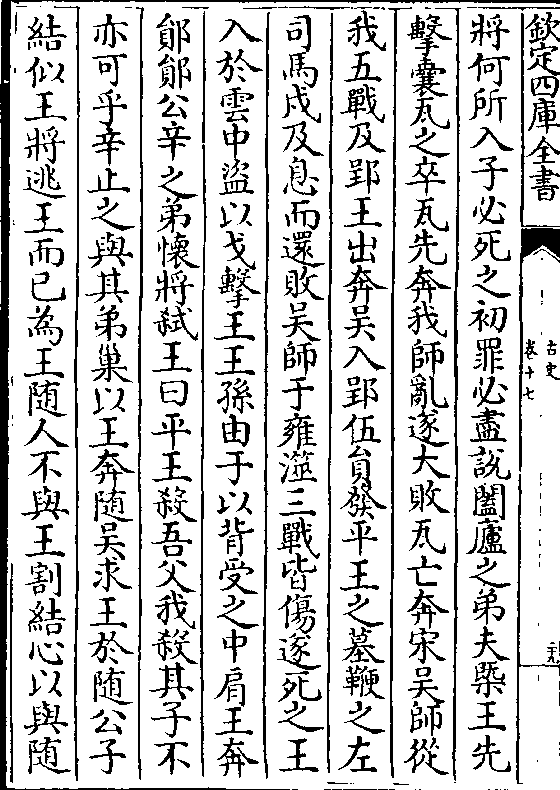 欽定四庫全書
古史
卷十七
將何所入子必死之初罪必盡說闔廬之弟夫㮣王先
擊囊瓦之卒瓦先奔我師亂遂大敗瓦亡奔宋吳師從
我五戰及郢王出奔吳入郢伍員發平王之墓鞭之左
司馬戍及息而還敗吳師于雍澨三戰皆傷遂死之王
入於雲中盜以戈擊王王孫由于以背受之中肩王奔
鄖鄖公辛之弟懷將弒王曰平王殺吾父我殺其子不
亦可乎辛止之與其弟巢以王奔隨吳求王於隨公子
結似王將逃王而已為王隨人不與王割結心以與隨